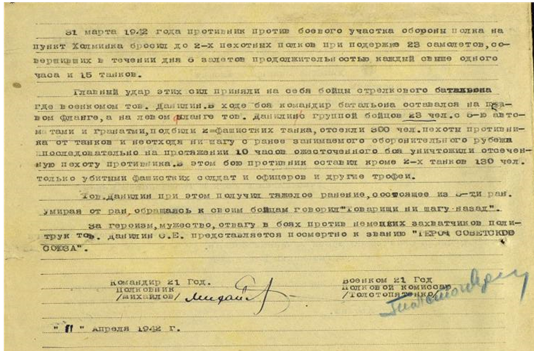 31 марта 1942 года противник против боевого участка обороны полка на
пункт Холминка бросил до 2-х пехотных полков при подержке 23 самолетов, со-
вершивших в течении дня 6 залетов продолжительностью каждый свыше одного
часа и 15 танков.
Главный удар этих сил приняли на себя бойцы стрелкового батальона
где военкомом тов. Данилин. В ходе боя командир батальона оставался на пра-
вом фланге, а на левом фланге тов. Данилин с групой бойцов 23 чел. с 5-ю авто-
матами и гранатми, подбили 2 фашистких танка, отсекли 300 чел. пехоты противни-
ка от танков и неотходя ни шагу с ранее занимаемого оборонительного рубежа
впоследовательно на протяжении 10 часов ожесточенного боя уничтожили отсечен-
ную пехоту противника. В этом бою противник оставил кроме 2-х танков 130 чел.
только убитыми фашистких солдат и офицеров и другие трофеи.
Тов. Данилин при этом получил тяжелое ранение, состоящее из 6-ти ран.
Умирая от ран, обращаясь к своим бойцам говорил "Товарищи ни шагу назад".
За героизм, мужество, отвагу в боях против немецких захватчиков поли-
трук тов. Данилин С.Е. представляется посмертно к званию "ГЕРОЯ СОВЕТСКОГО
СОЮЗА".
Командир 21 Год.
Полковник
/Михайлов/
Военком 21 Год
Полковой комиссар
/Толстопятенко/
"11" Апреля 1942 г.